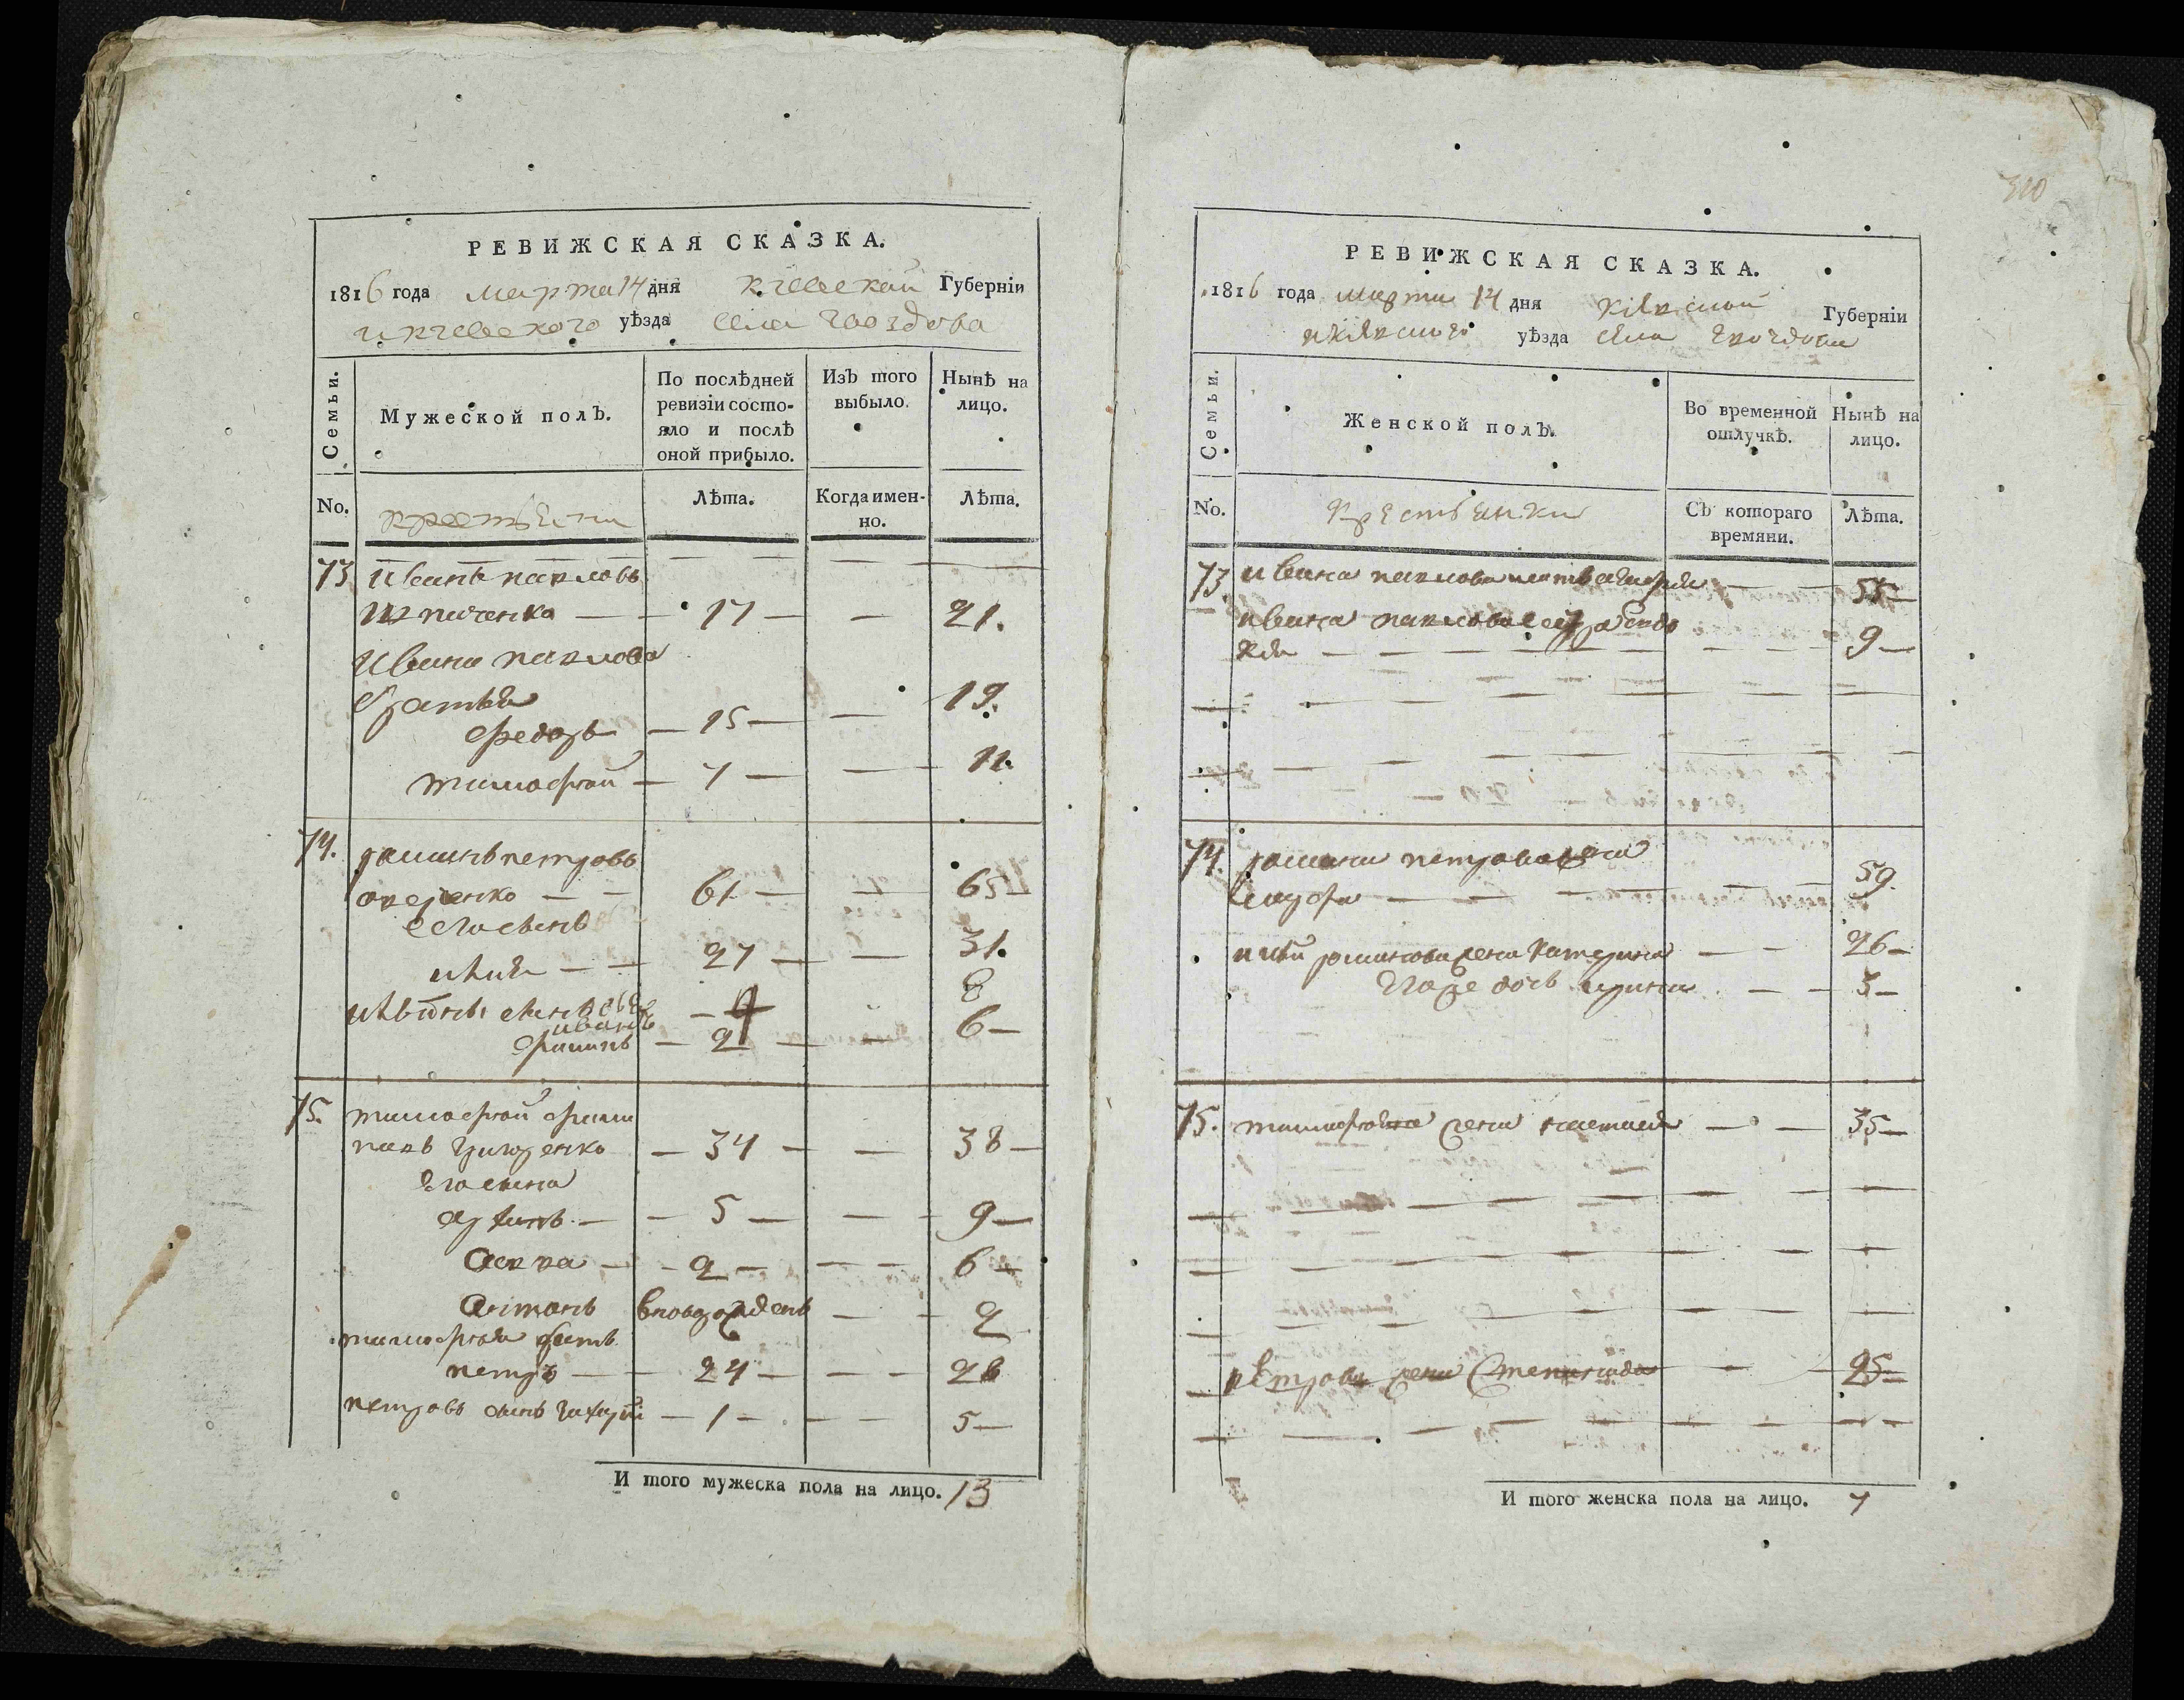 РЕВИЖСКАЯ СКАЗКА.
1816 года марта 14 дня киевской Губерніи
и киевского уѣзда села гвоздова
Семьи.
Мужеской полЪ.
По послѣдней ревизіи состояло и послѣ оной прибыло.
ИзЪ того выбыло.
Нынѣ на лицо.
No.
Лѣта.
Когда именно.
Лѣта.
73 иванъ павловъ
— 17 — — 21.
ивана павлова
братья
федоръ — 15 — — 19.
тимофей — 7 — — 11.
74. романъ петровъ
— — 61 — — 65
его сынъ
илия — — 27 — — 31.
8
иванъ
филипъ — 2 — — 6 —
75. тимофей фили
повъ григоренко — 34 — — 38 —
его сына
— — 5 — — 9 —
савва — — 2 — — — 6 —
антонъ вновьрожденъ — — 2
тимофея братъ
петръ — — 24 — — — 28
петровъ сынъ захарій — 1 — — — 5 —
И того мужеска пола на лицо. 13
310
РЕВИЖСКАЯ СКАЗКА.
1816 года марта 14 дня кіевской Губерніи
и кіевского уѣзда села гвоздова
Семьи.
Женской полЪ.
Во временной отлучкѣ.
Нынѣ на лицо.
No.
крестьянки
СЪ котораго времяни.
Лѣта.
73. ивана павлова мать — — 55 —
ивана павлова сестра евдо
кия — — — 9 —
74. романа петрова жена
— — — 59.
илии романова жена катерина — — 26 —
его же дочь ирина — — 3 —
75. тимофея жена настасия — — 35 —
петрова жена степанида — — 25 —
И того женска пола на лицо. 7